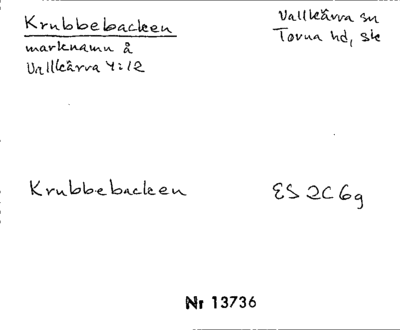 Krubbebacken
marknamn å
Vallkärra 4:12
Vallkärra sn
Torna hd, Sk
Krubbebacken
ES 2C 6g
Nr 13736